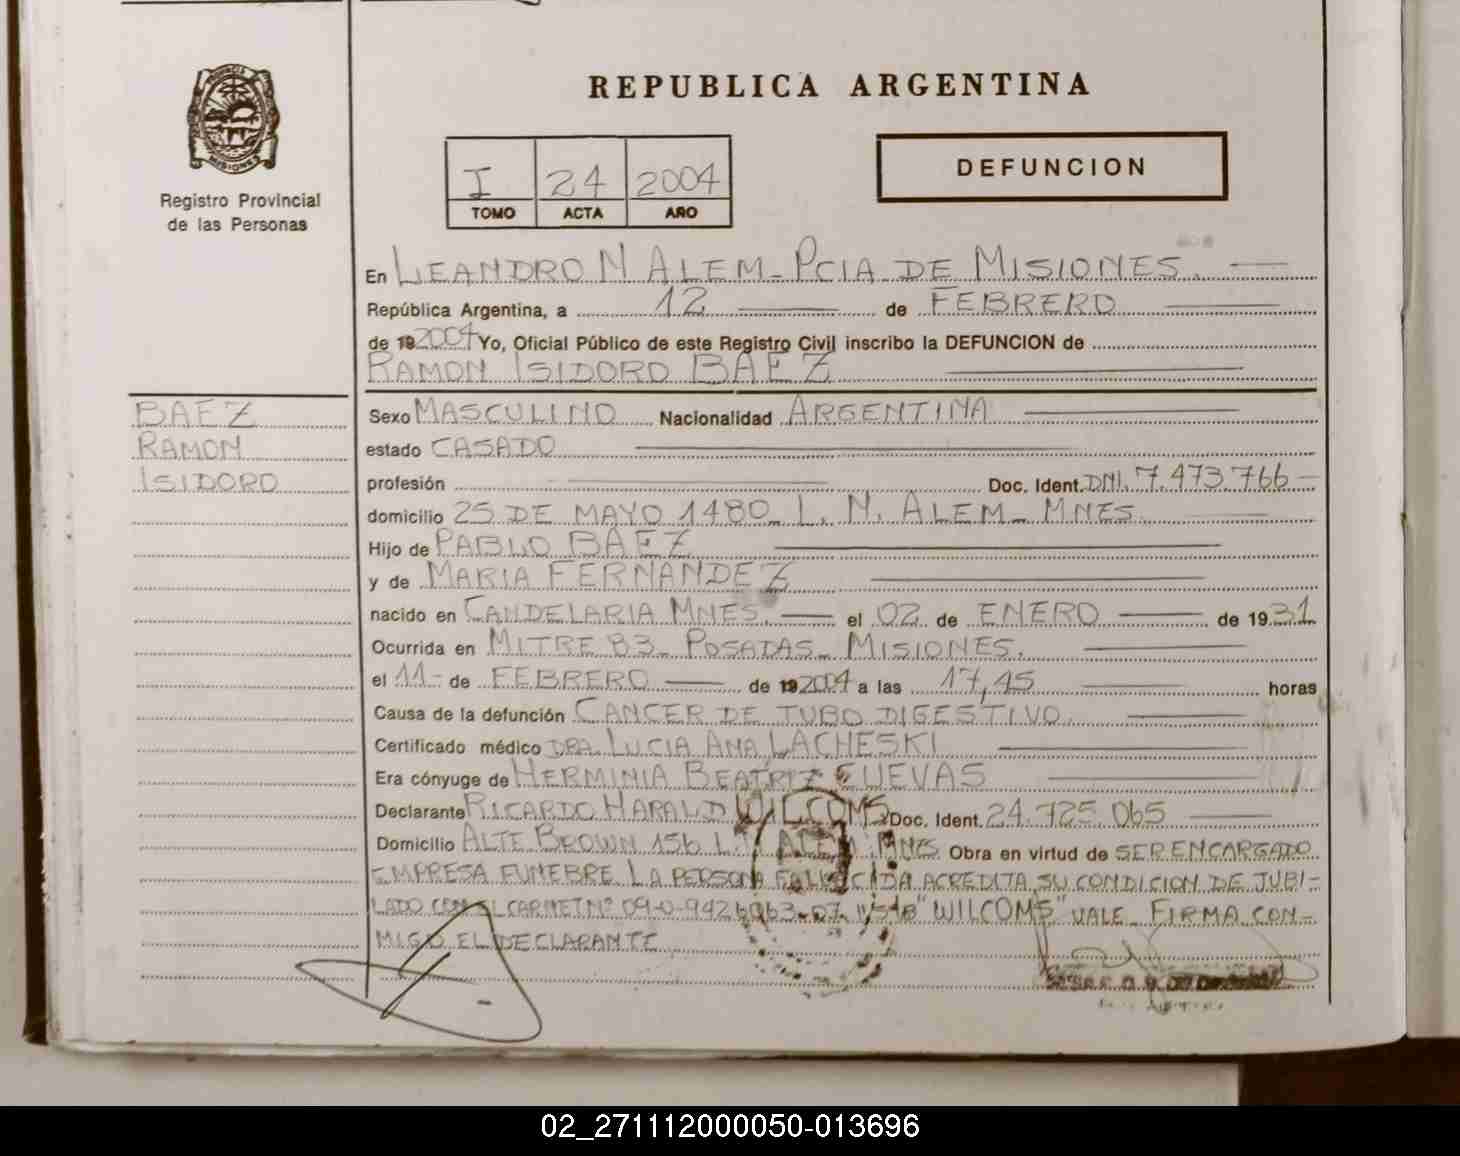 REPUBLICA ARGENTINA
PROVINCIA
MISIONES
Registro Provincial
de las Personas
I 24 2004
TOMO ACTA AÑO
DEFUNCION
En LEANDRO N ALEM - PCIA DE MISIONES.
República Argentina, a 12 de FEBRERO
de 19 2004 Yo, Oficial Público de este Registro Civil inscribo la DEFUNCION de
RAMON ISIDORO BAEZ
BAEZ
RAMON
ISIDORO
Sexo MASCULINO Nacionalidad ARGENTINA
estado CASADO
profesión Doc. Ident. DNI. 7.473.766
domicilio 25 DE MAYO 1480 - L. N. ALEM - MNES.
Hijo de PABLO BAEZ
y de MARIA FERNANDEZ
nacido en CANDELARIA MNES. el 02 de ENERO de 1931
Ocurrida en MITRE 83 - POSADAS - MISIONES.
el 11 - de FEBRERO de 19 2004 a las 17,45 horas
Causa de la defunción CANCER DE TUBO DIGESTIVO.
Certificado médico DRA. LUCIA ANA LACHESKI
Era cónyuge de HERMINIA BEATRIZ CUEVAS
Declarante RICARDO HARALD WILCOMS Doc. Ident. 24.725.065
Domicilio ALTE BROWN 156 L. ALEM. MNES Obra en virtud de SER ENCARGADO
EMPRESA FUNEBRE LA PERSONA FALLECIDA ACREDITA SU CONDICION DE JUBI-
LADO CON EL CARNET Nº "WILCOMS" VALE - FIRMA CON-
MIGO EL DECLARANTE
02_271112000050-013696